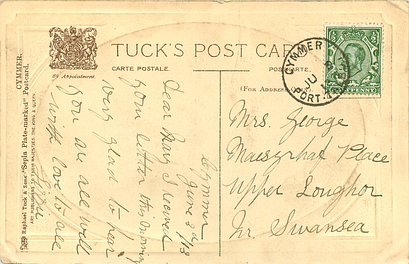 TUCK'S POST CARD
CARTE POSTALE.
POSTKARTE.
By Appointment.
(FOR ADDRESS
CYMMER.
Raphael Tuck & Sons' "Sepia Plate-marked" Postcard.
ART PUBLISHERS TO THEIR MAJESTIES THE KING & QUEEN.
CYMMER
JU
PORT
Cymmer
June 2nd/13
Dear Mary I received
your letter this morning
very glad to hear
you are all well
with love to all
Mrs. George
Maesyrhaf Place
Upper Loughor
Nr. Swansea